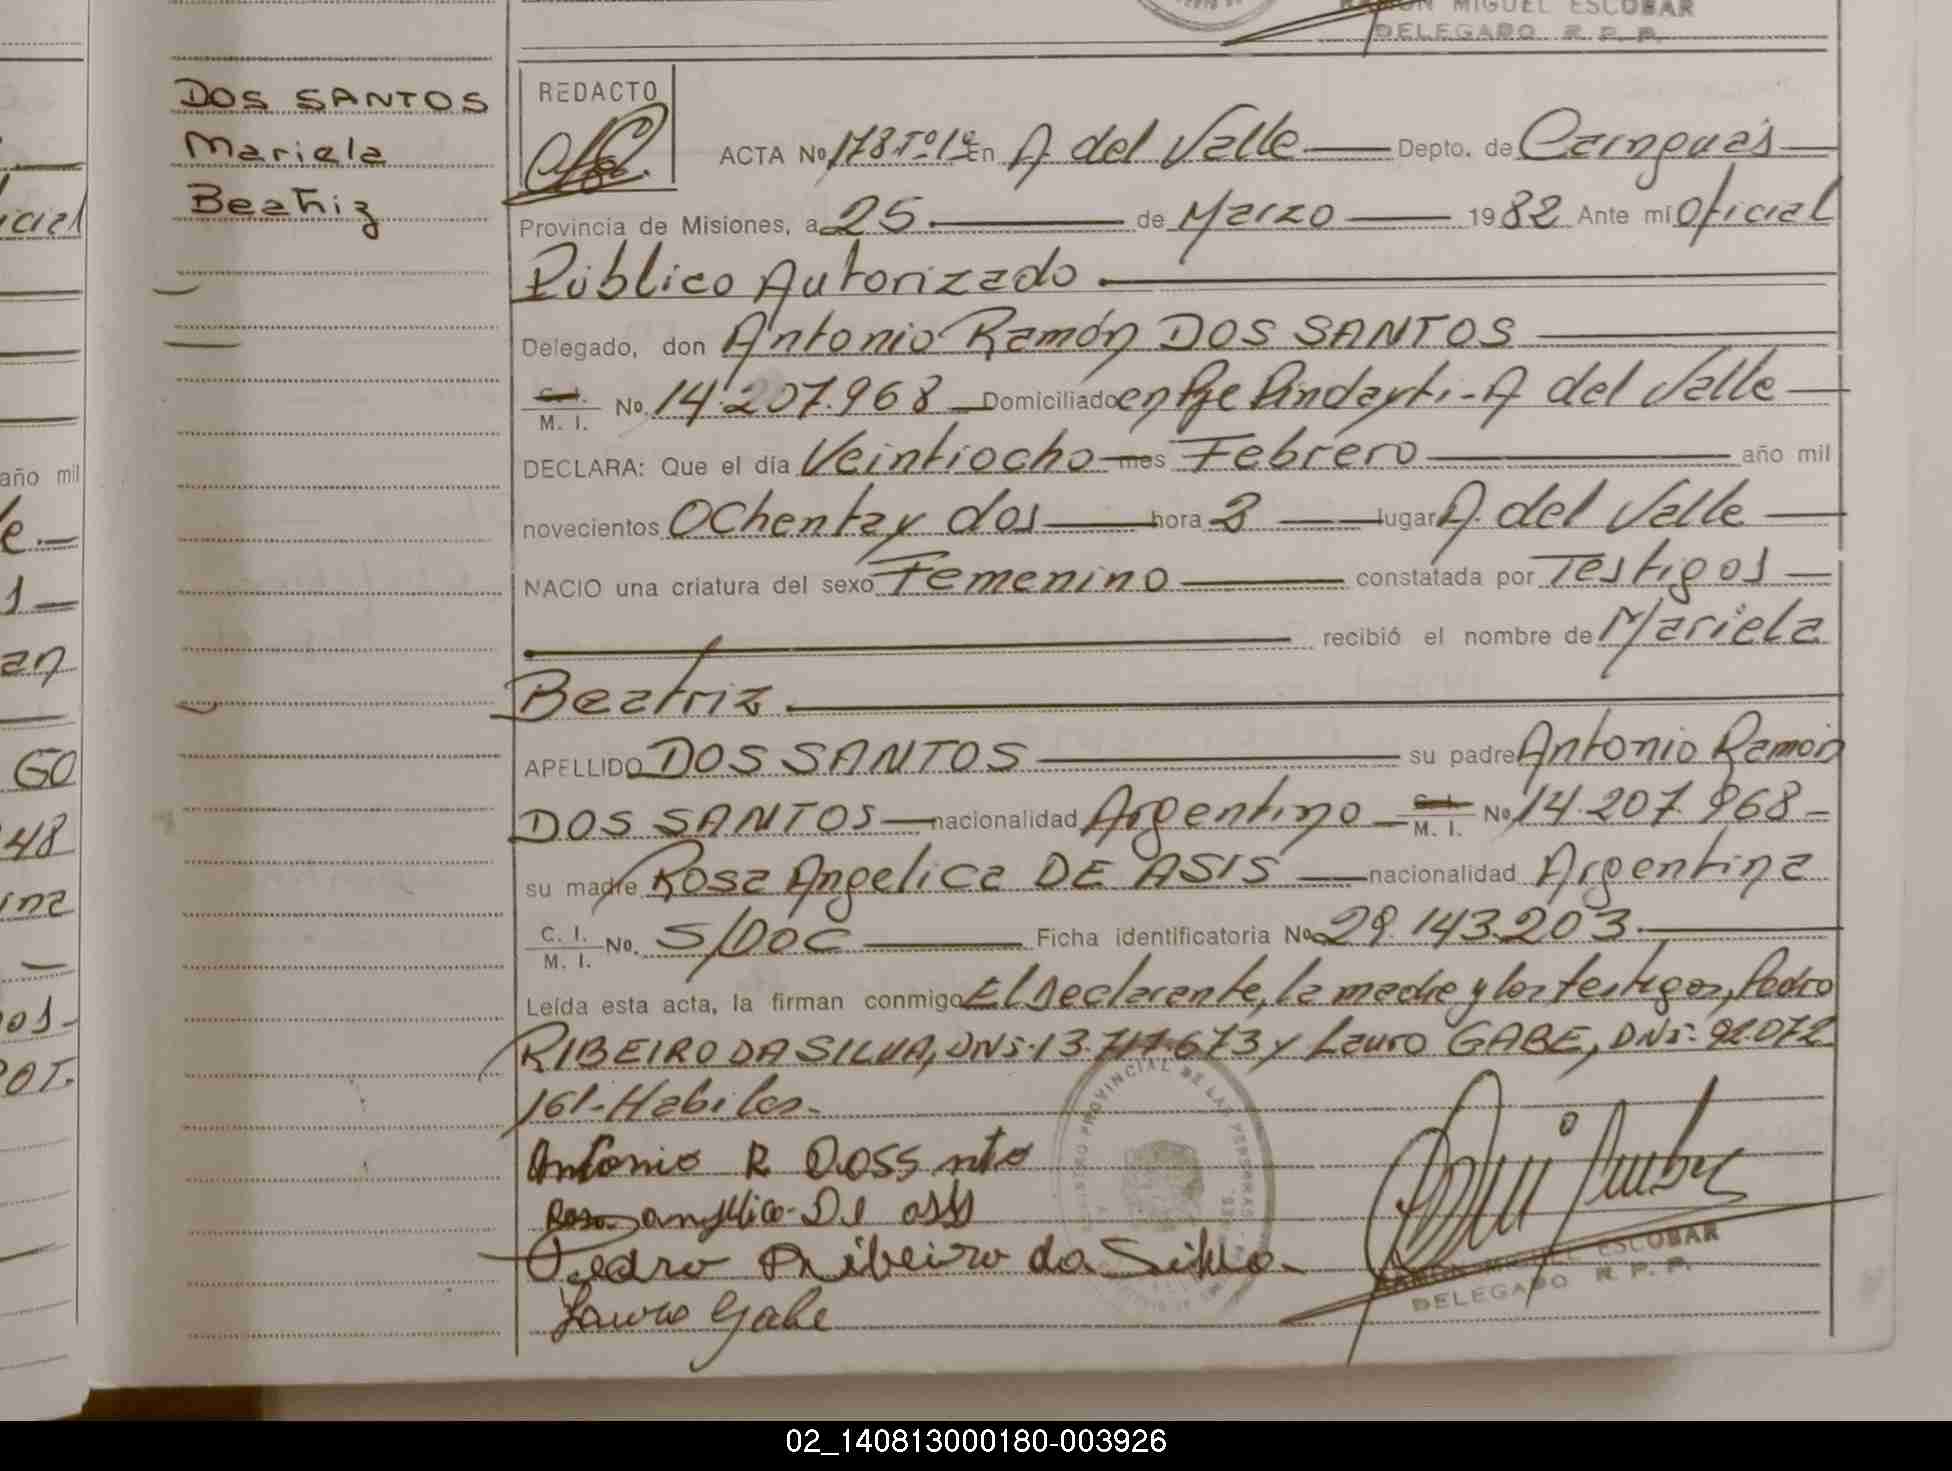 RAMON MIGUEL ESCOBAR
DELEGADO R. P. P.
DOS SANTOS
Mariela
Beatriz
REDACTO
ACTA No 178 Tº 1º En A. del Valle Depto. de Cainguás
Provincia de Misiones, a 25 de Marzo 1982 Ante mí Oficial
Público Autorizado
Delegado, don Antonio Ramón DOS SANTOS
C. I.
M. I. No. 14.207.968 Domiciliado en Pje Pindayti - A del Valle
DECLARA: Que el día Veintiocho mes Febrero año mil
novecientos Ochenta y dos hora 3 lugar A. del Valle
NACIO una criatura del sexo Femenino constatada por Testigos
recibió el nombre de Mariela
Beatriz
APELLIDO DOS SANTOS su padre Antonio Ramón
DOS SANTOS nacionalidad Argentino C. I. M. I. No 14.207.968
su madre Rosa Angelica DE ASIS nacionalidad Argentina
C. I.
M. I. No. S/DOC Ficha identificatoria No 29.143.203.
Leída esta acta, la firman conmigo El Declarante, la madre y los testigos, Pedro
RIBEIRO DA SILVA, DNI: 13.717.673 y Lauro GABE, DNI: 92.072
161-Habiles.
Antonio R Dossnto
Rosa angelica De asis
Pedro Ribeiro da Silva
Lauro Gabe
REGISTRO PROVINCIAL DE LAS PERSONAS
RAMON MIGUEL ESCOBAR
DELEGADO R. P. P.
icial
año mil
e.
1
an
GO
48
ina
os
POT.
02_140813000180-003926